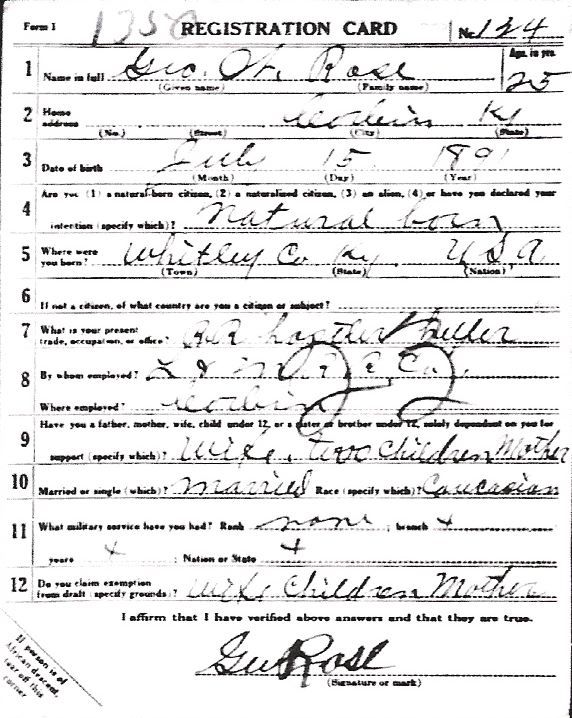 Form 1 1350 REGISTRATION CARD No. 124
1 Name in full Geo. W. Rose Age, in yrs. 25
(Given name) (Family name)
2 Home address Corbin Ky
(No.) (Street) (City) (State)
3 Date of birth July 15 1891
(Month) (Day) (Year)
4 Are you (1) a natural-born citizen, (2) a naturalized citizen, (3) an alien, (4) or have you declared your
intention (specify which)? Natural born
5 Where were you born? Whitley Co Ky. U S A
(Town) (State) (Nation)
6 If not a citizen, of what country are you a citizen or subject?
7 What is your present trade, occupation, or office? R.R.
8 By whom employed? L & N R R Co.
Where employed? Corbin
9 Have you a father, mother, wife, child under 12, or a sister or brother under 12, solely dependent on you for
support (specify which)? Wife, two Children Mother
10 Married or single (which)? Married Race (specify which)? Caucasian
11 What military service have you had? Rank none ; branch x
years x ; Nation or State x
12 Do you claim exemption from draft (specify grounds)? Wife Children Mother
I affirm that I have verified above answers and that they are true.
Geo Rose
(Signature or mark)
If person is of
African descent,
tear off this
corner